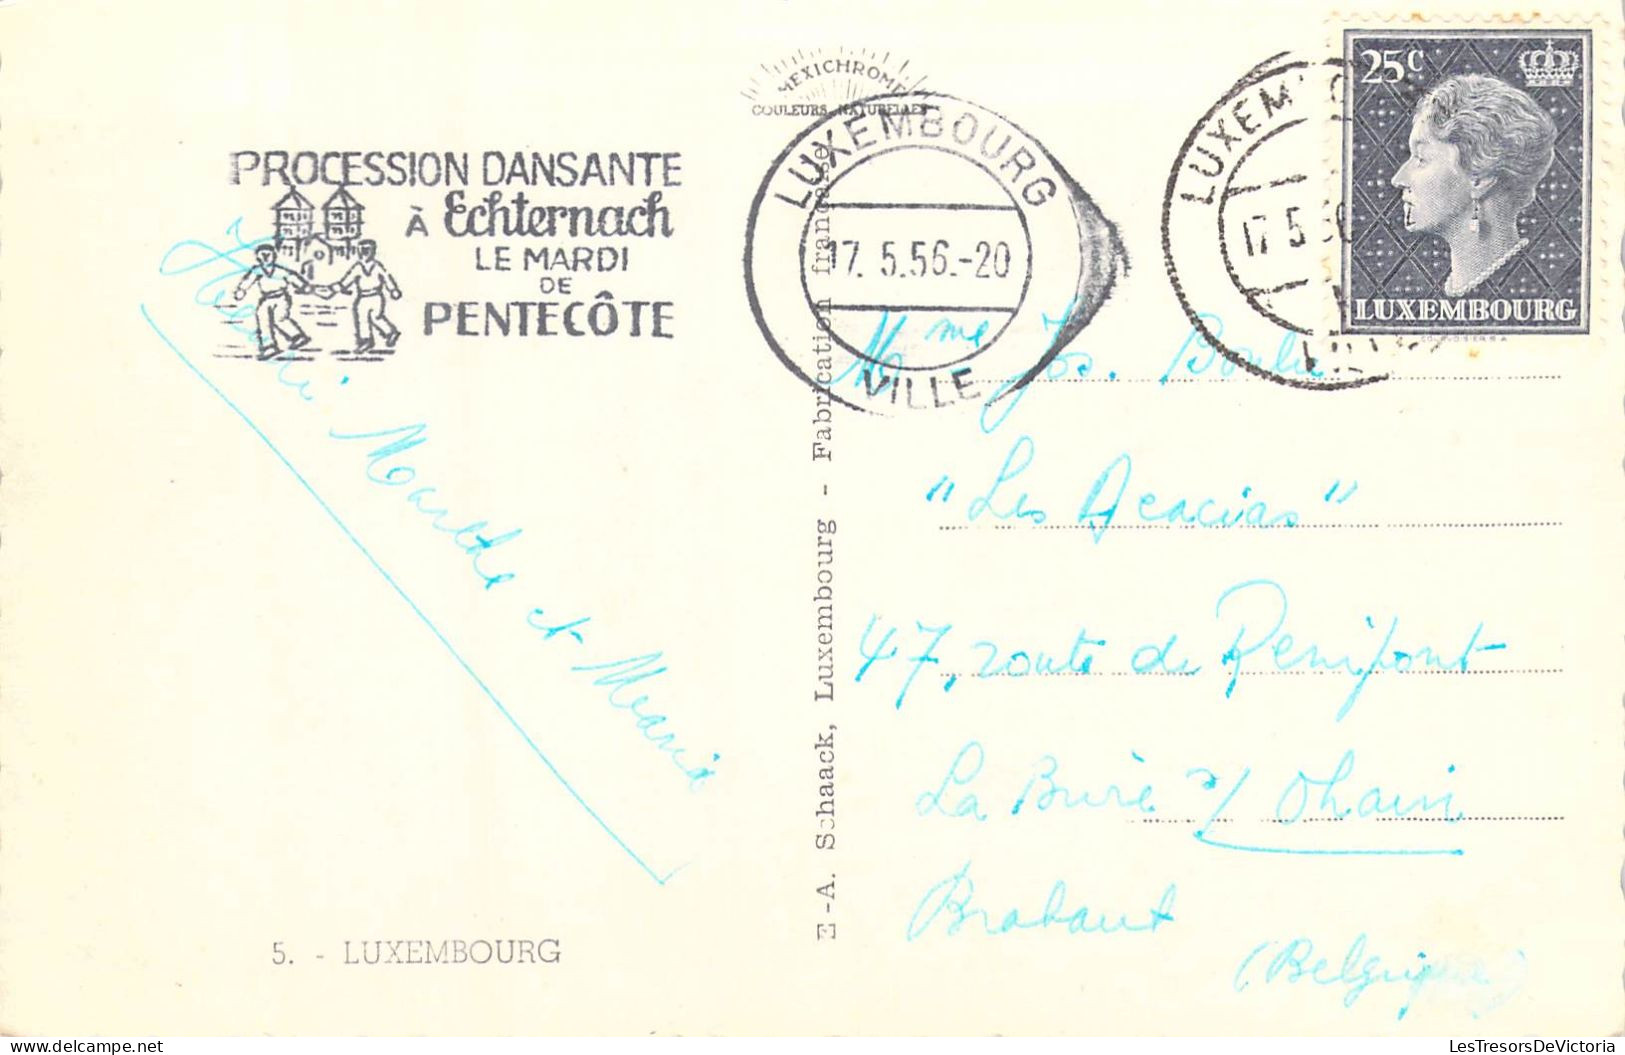 MEXICHROME
COULEURS NATURELLES
PROCESSION DANSANTE
À Echternach
LE MARDI
DE
PENTECÔTE
LUXEMBOURG
17. 5.56.-20
VILLE
LUXEM
17 5 56
25c
LUXEMBOURG
COURVOISIER S.A.
Marthe et Maria
5. - LUXEMBOURG
E.-A. Schaack, Luxembourg - Fabrication française
Mme Jos.
"Les Acacias"
47, route de Renipont
La Bure s/ Ohain
Brabant
(Belgique)
LesTresorsDeVictoria